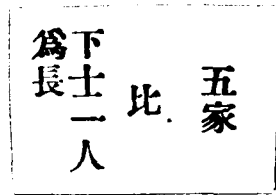 五家
比
下士一人
爲長